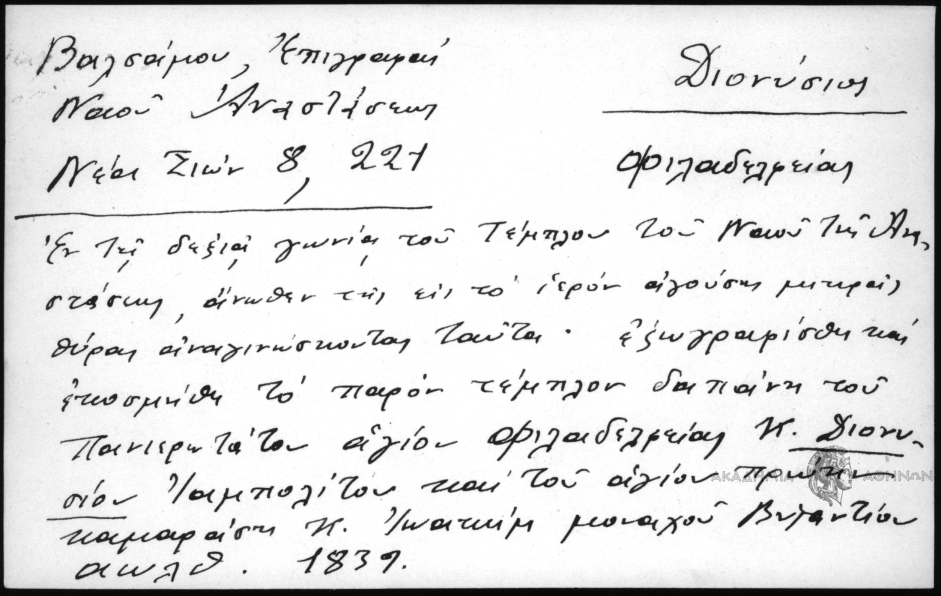 Βαλσάμου, Ἐπιγραφαί
Ναοῦ Ἀναστάσεως
Νέα Σιών 8, 221
Διονύσιος
Φιλαδελφείας
Ἐν τῇ δεξιᾷ γωνίᾳ τοῦ Τέμπλου τοῦ Ναοῦ τῆς Ἀνα-
στάσεως, ἄνωθεν τῆς εἰς τὸ ἱερόν ἀγούσης μικρᾶς
θύρας ἀναγινώσκονται ταῦτα· ἐξωγραφίσθη καί
ἐκοσμήθη τὸ παρόν τέμπλον δαπάνη τοῦ
Πανιερωτάτου ἁγίου Φιλαδελφείας Κ. Διονυ-
σίου Ἰαμπολίτου καί τοῦ ἁγίου
καμαράση Κ. Ἰωακίμ μοναχοῦ Βυζαντίου
αωλθ. 1839.
ΑΚΑΔΗΜΙΑ ΑΘΗΝΩΝ